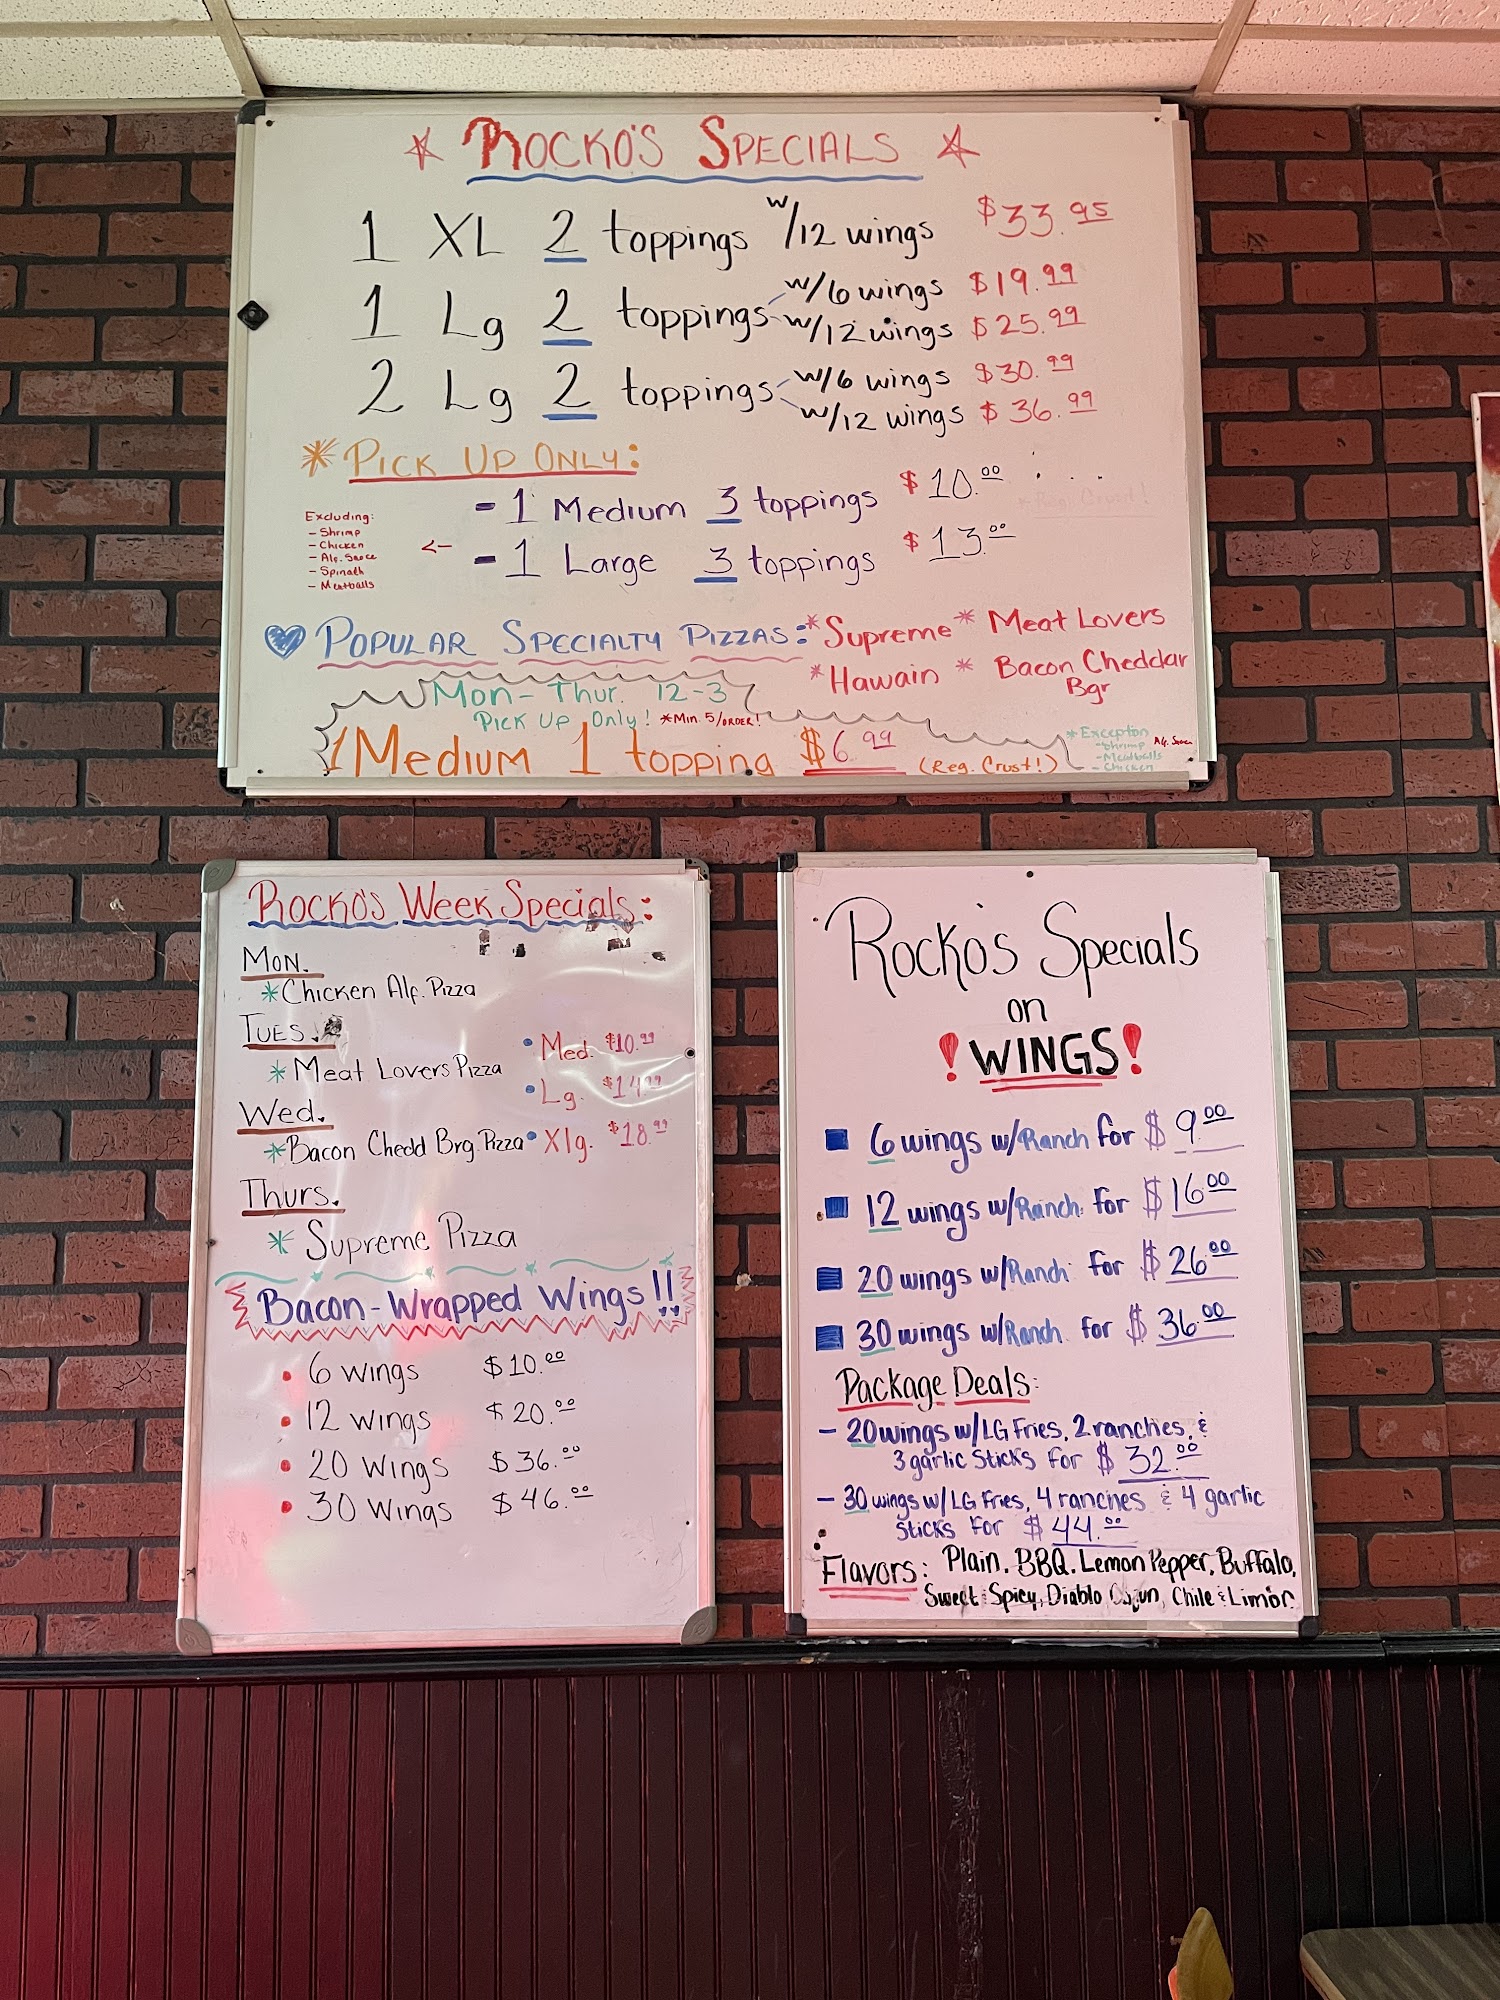 Rocko's Specials
1 XL 2 toppings w/12 wings $33.95
1 Lg 2 toppings w/6 wings $19.99
w/12 wings $25.99
2 Lg 2 toppings w/6 wings $30.99
w/12 wings $36.99
* Pick Up Only:
- 1 Medium 3 toppings $10.00
- 1 Large 3 toppings $13.00
Excluding:
- Shrimp
- Chicken
- Alf. Sauce
- Spinath
- Meatballs
<-
Popular Specialty Pizzas: * Supreme * Meat Lovers
* Hawain * Bacon Cheddar
Bgr
Mon - Thur. 12-3
Pick Up Only! *Min. 5/order!
1 Medium 1 topping $6.99 (Reg. Crust!)
* Excepton
- Shrimp
- Meatballs
- Chicken
Rocko's Week Specials:
Mon.
* Chicken Alf. Pizza
Tues.
* Meat Lovers Pizza
Wed.
* Bacon Chedd Brg. Pizza
Thurs.
* Supreme Pizza
• Med. $10.99
• Lg. $14.99
• Xlg. $18.99
Bacon-Wrapped Wings!!
• 6 wings $10.00
• 12 wings $20.00
• 20 wings $36.00
• 30 wings $46.00
Rocko's Specials
on
! WINGS!
6 wings w/Ranch for $9.00
12 wings w/Ranch for $16.00
20 wings w/Ranch for $26.00
30 wings w/Ranch for $36.00
Package Deals:
- 20 wings w/LG Fries, 2 ranches, &
3 garlic Sticks for $32.00
- 30 wings w/LG Fries, 4 ranches & 4 garlic
Sticks for $44.00
Flavors: Plain, BBQ, Lemon Pepper, Buffalo,
Sweet & Spicy, Diablo Cajun, Chile & Limon